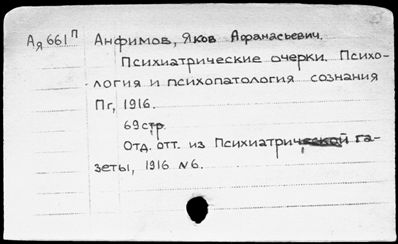 Ая 661п Анфимов, Яков Афанасьевич.
Психиатрические очерки. Психо-
логия и психопатология сознания
Пг, 1916.
69 стр.
Отд. отт. из Психиатрической га-
зеты, 1916 №6.